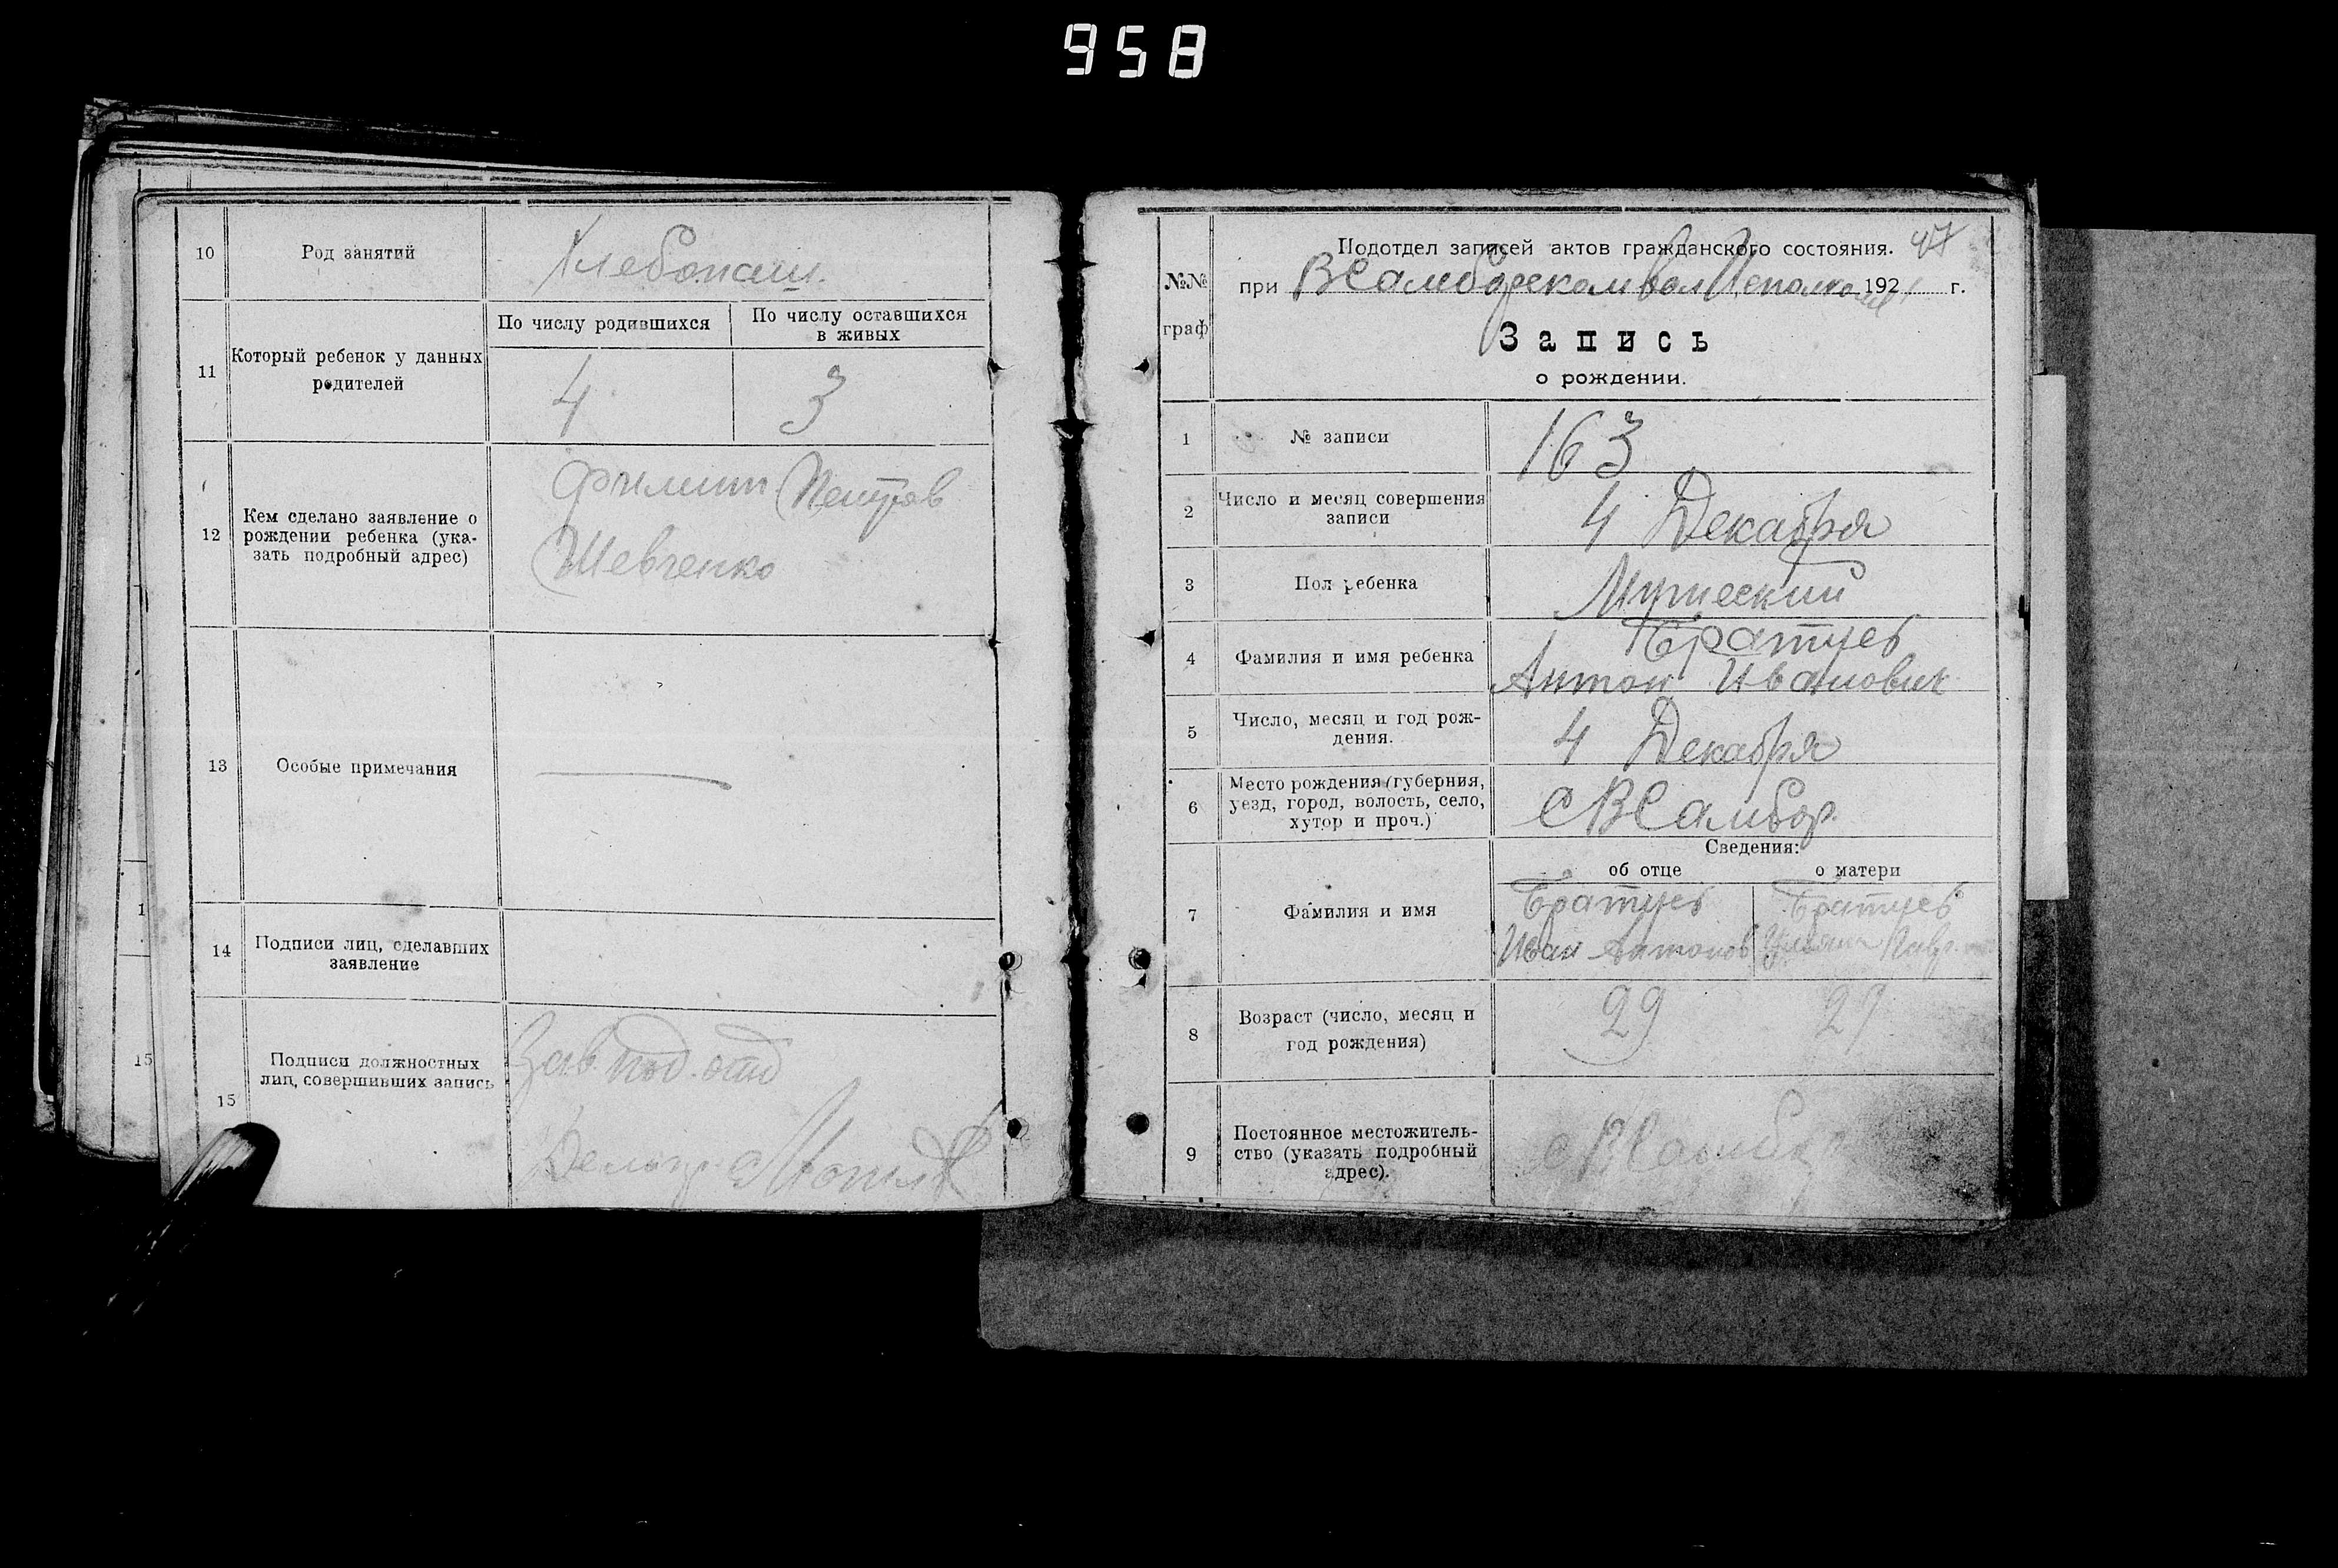 958
10
Род занятий
Хлебопаш.
11
Который ребенок у данных
родителей
По числу родившихся
По числу оставшихся
в живых
4
3
12
Кем сделано заявление о
рождении ребенка (ука-
зать подробный адрес)
Филипп Петров
Шевченко
13
Особые примечания
14
Подписи лиц, сделавших
заявление
15
Подписи должностных
лиц, совершивших запись
Зав. под. отд
Делопр.
1
15
47
Подотдел записей актов гражданского состояния.
№№
граф
при ВСамборском Вол Исполкоме 1921 г.
Запись
о рождении.
1
№ записи
163
2
Число и месяц совершения
записи
4 Декабря
3
Пол ребенка
Мужеский
4
Фамилия и имя ребенка
Братцев
Антон Иванович
5
Число, месяц и год рож-
дения.
4 Декабря
6
Место рождения (губерния,
уезд, город, волость, село,
хутор и проч.)
С ВСамбор.
Сведения:
об отце
о матери
7
Фамилия и имя
Братцев
Иван Антонов
Братцев
8
Возраст (число, месяц и
год рождения)
29
27
9
Постоянное местожитель-
ство (указать подробный
адрес).
с ВСамбор